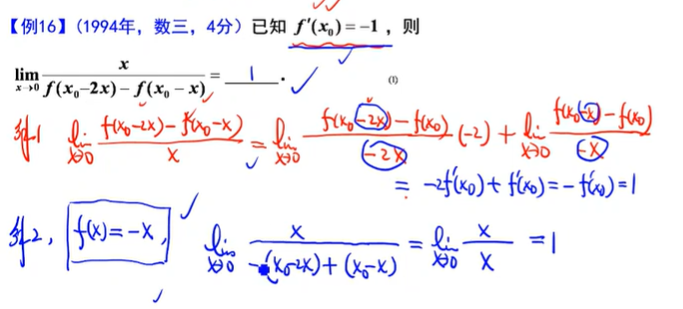 【例16】（1994年，数三，4分）已知 f′(x₀)=−1，则
lim x→0 x / (f(x₀−2x)−f(x₀−x)) = 1 .
(1)
lim x→0 (f(x₀−2x)−f(x₀−x)) / x = lim x→0 (f(x₀−2x)−f(x₀)) / (−2x) (−2) + lim x→0 (f(x₀−x)−f(x₀)) / (−x)
= −2f′(x₀)+f′(x₀)=−f′(x₀)=1
2, f(x)=−x, lim x→0 x / (−(x₀−2x)+(x₀−x)) = lim x→0 x / x = 1